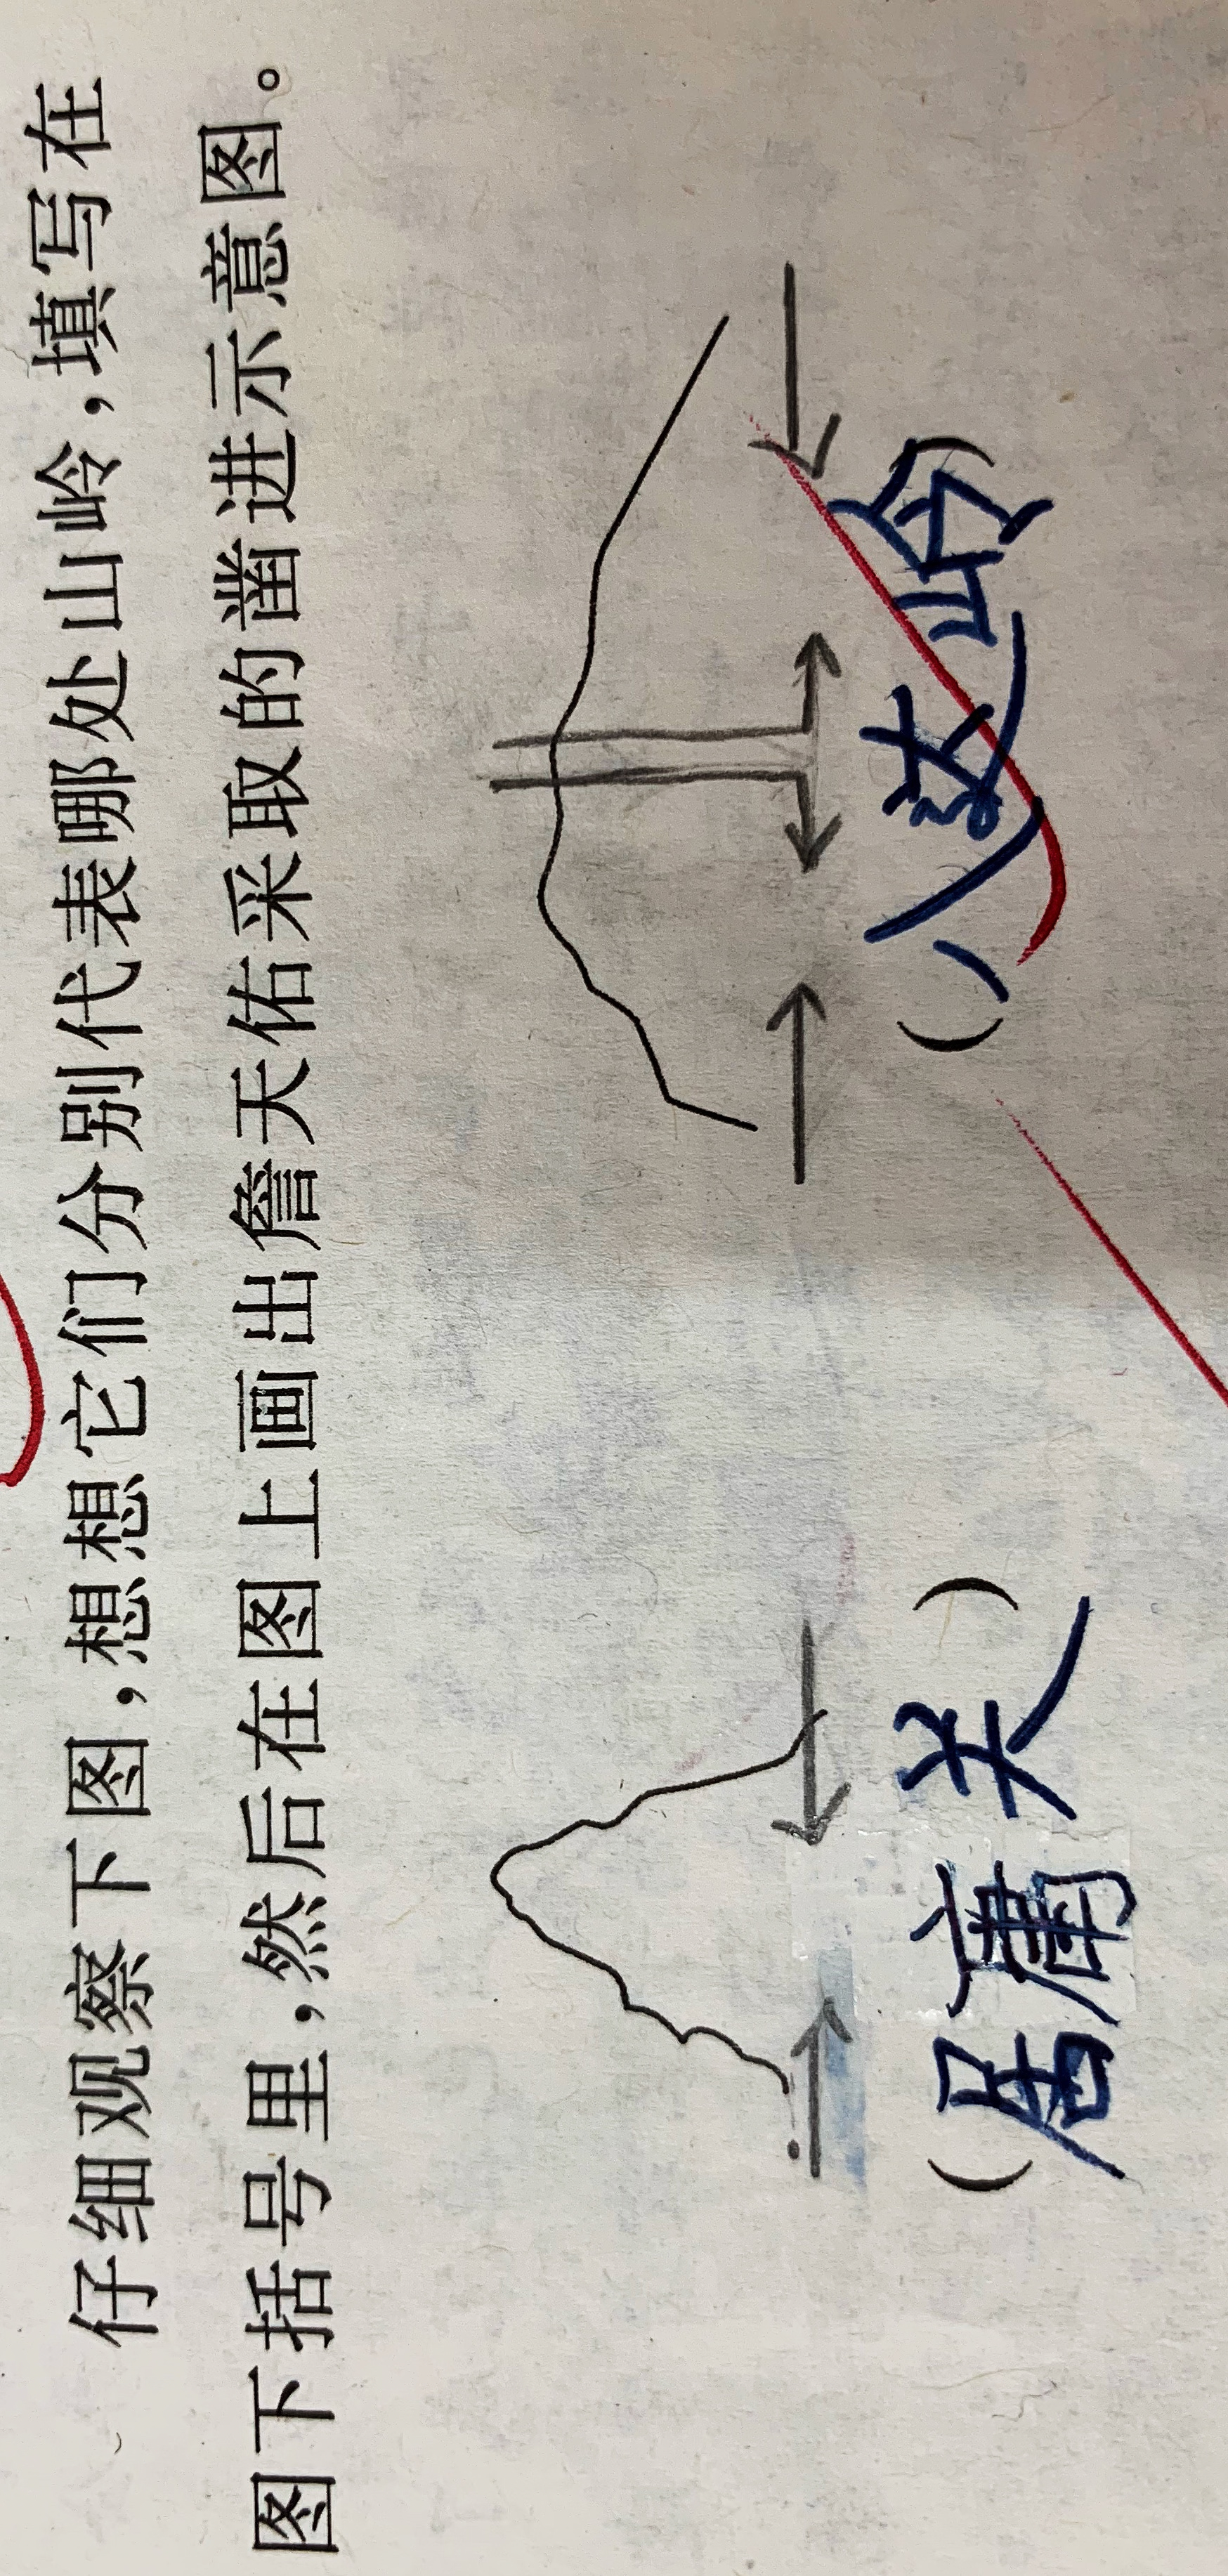 仔细观察下图,想想它们分别代表哪处山岭,填写在
图下括号里,然后在图上画出詹天佑采取的凿进示意图。
(居庸关) (八达岭)